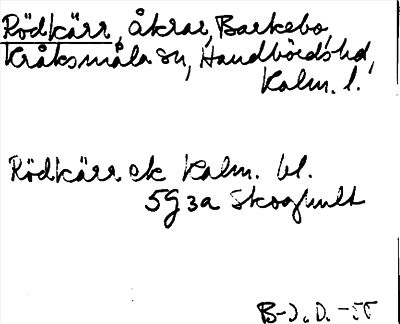 Rödkärr, åkrar, Barkebo,
Kråksmåla sn, Handbörds hd,
Kalm. l.
Rödkärr ek Kalm. bl.
5G3a Skoghult
B-J.D. -55